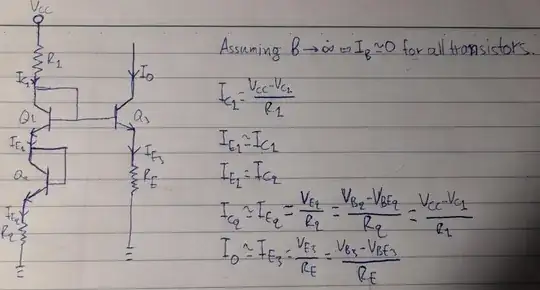 V_CC
R_1
I_C1
I_O
Q_1
Q_3
I_E1
I_E3
R_E
I_E2
R_2
Assuming β→∞ ⇔ I_B≃0 for all transistors.
I_C1 = (V_CC-V_C1)/R_1
I_E1 ≃ I_C1
I_E1 = I_C2
I_C2 ≃ I_E2 = V_E2/R_2 = (V_B2-V_BE2)/R_2 = (V_CC-V_C1)/R_1
I_O ≃ I_E3 = V_E3/R_E = (V_B3-V_BE3)/R_E